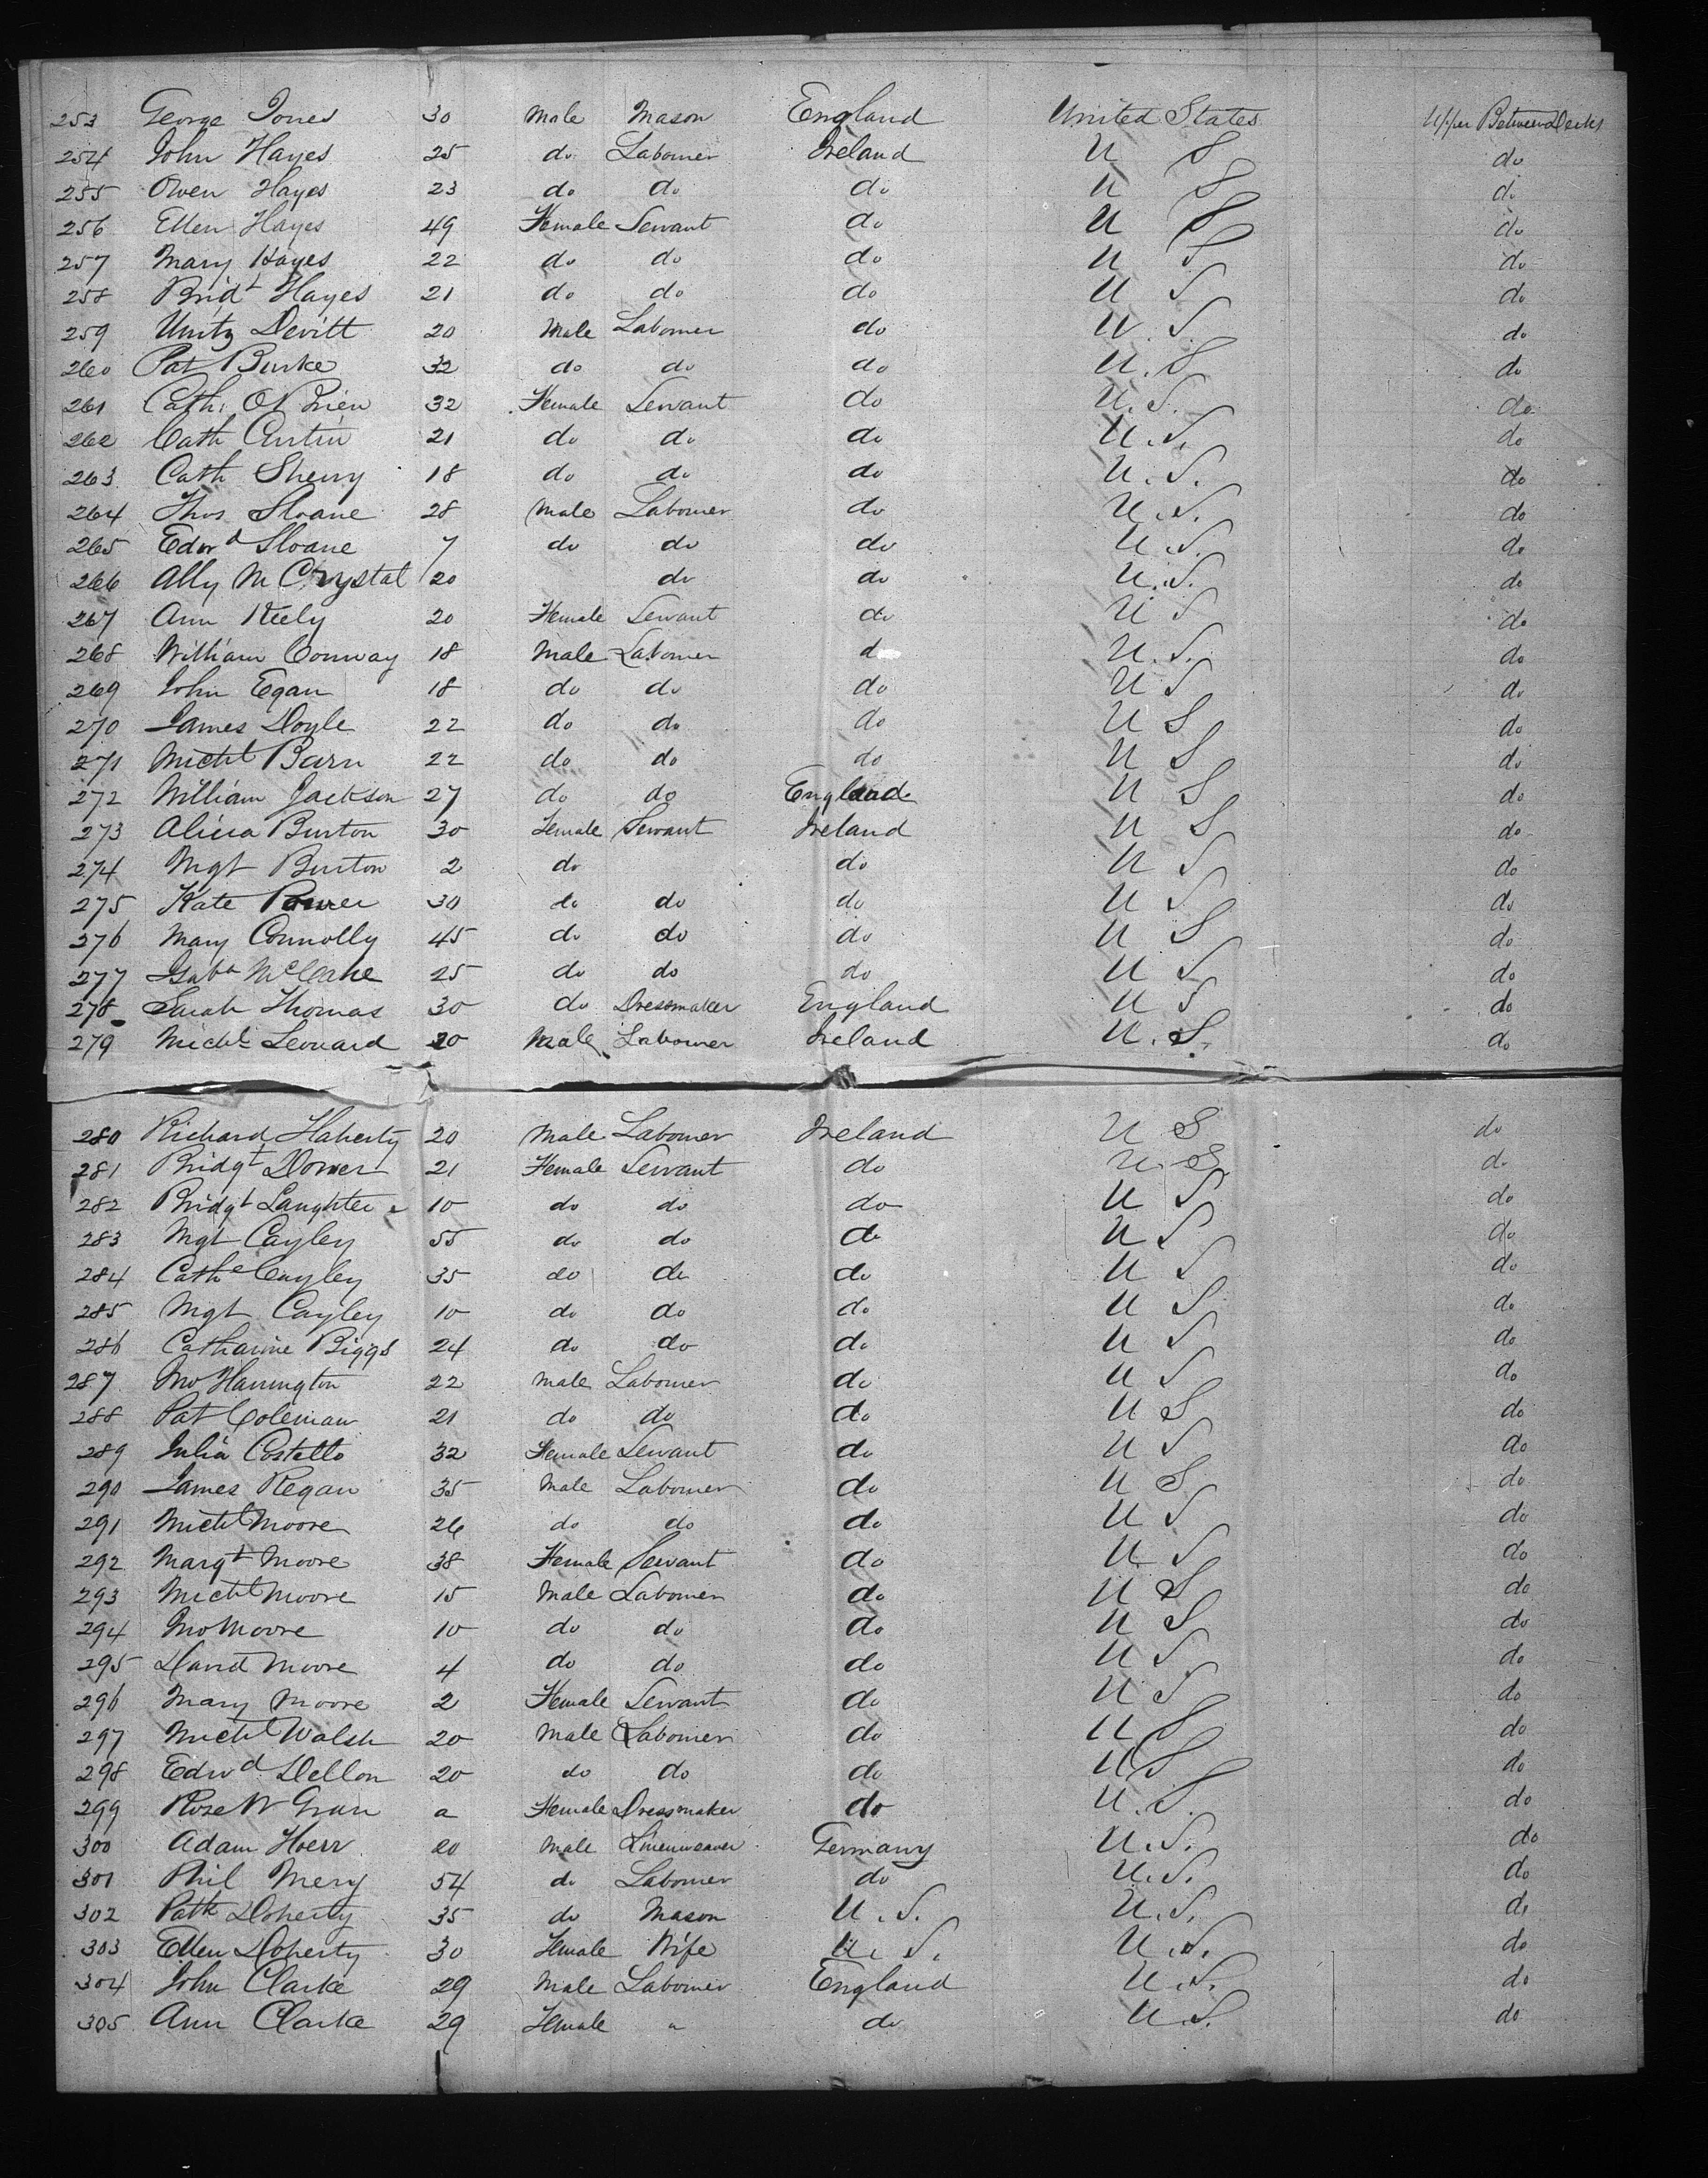 253 George Jones 30 Male Mason England United States Upper Between Decks
254 John Hayes 25 do Labourer Ireland U S do
255 Owen Hayes 23 do do do U S do
256 Ellen Hayes 49 Female Servant do U S do
257 Mary Hayes 22 do do do U S do
258 Bridt Hayes 21 do do do U S do
259 Devitt 20 Male Labourer do U.S. do
260 Pat Burke 32 do do do U.S do
261 Cath. O'Brien 32 Female Servant do U.S. do
262 Cath Curtin 21 do do do U.S. do
263 Cath Sherry 18 do do do U.S. do
264 Thos Sloane 28 Male Labourer do U.S. do
265 Edwd Sloane 7 do do do U.S. do
266 Ally McCrystal 20 do do U.S. do
267 Ann Keely 20 Female Servant do U S do
268 William Conway 18 Male Labourer d U.S. do
269 John Egan 18 do do do U S do
270 James Doyle 22 do do do U S do
271 Michl Barn 22 do do do U S do
272 William Jackson 27 do do England U S do
273 Alicia Burton 30 Female Servant Ireland U S do
274 Mgt Burton 2 do do U S do
275 Kate Power 30 do do do U S do
276 Mary Connolly 45 do do do U S do
277 Isaba McCabe 25 do do do U S do
278 Sarah Thomas 30 do Dressmaker England U S do
279 Michl Leonard 20 Male Labourer Ireland U.S. do
280 Richard Flaherty 20 Male Labourer Ireland U S do
281 Bridgt Dower 21 Female Servant do U S do
282 Bridgt 10 do do do U S do
283 Mgt Cayley 55 do do do U S do
284 Cathe Cayley 35 do do do U S do
285 Mgt Cayley 10 do do do U S do
286 Catharine Biggs 24 do do do U S do
287 Jno Harrington 22 Male Labourer do U S do
288 Pat Coleman 21 do do do U S do
289 Julia Costello 32 Female Servant do U S do
290 James Regan 35 Male Labourer do U S do
291 Michl Moore 26 do do do U S do
292 Margt Moore 38 Female Servant do U S do
293 Michl Moore 15 Male Labourer do U S do
294 Jno Moore 10 do do do U S do
295 David Moore 4 do do do U S do
296 Mary Moore 2 Female Servant do U S do
297 Michl Walsh 20 Male Labourer do U S do
298 Edwd Dellon 20 do do do U S do
299 Rose a Female Dressmaker do U.S. do
300 Adam Hoerr 20 Male Linenweaver Germany U.S. do
301 Phil Merz 54 do Labourer do U.S. do
302 Patk Doherty 35 do Mason U.S. U.S. do
303 Ellen Doherty 30 Female Wife U.S. U.S. do
304 John Clarke 29 Male Labourer England U.S. do
305 Ann Clarke 29 Female " do U.S. do